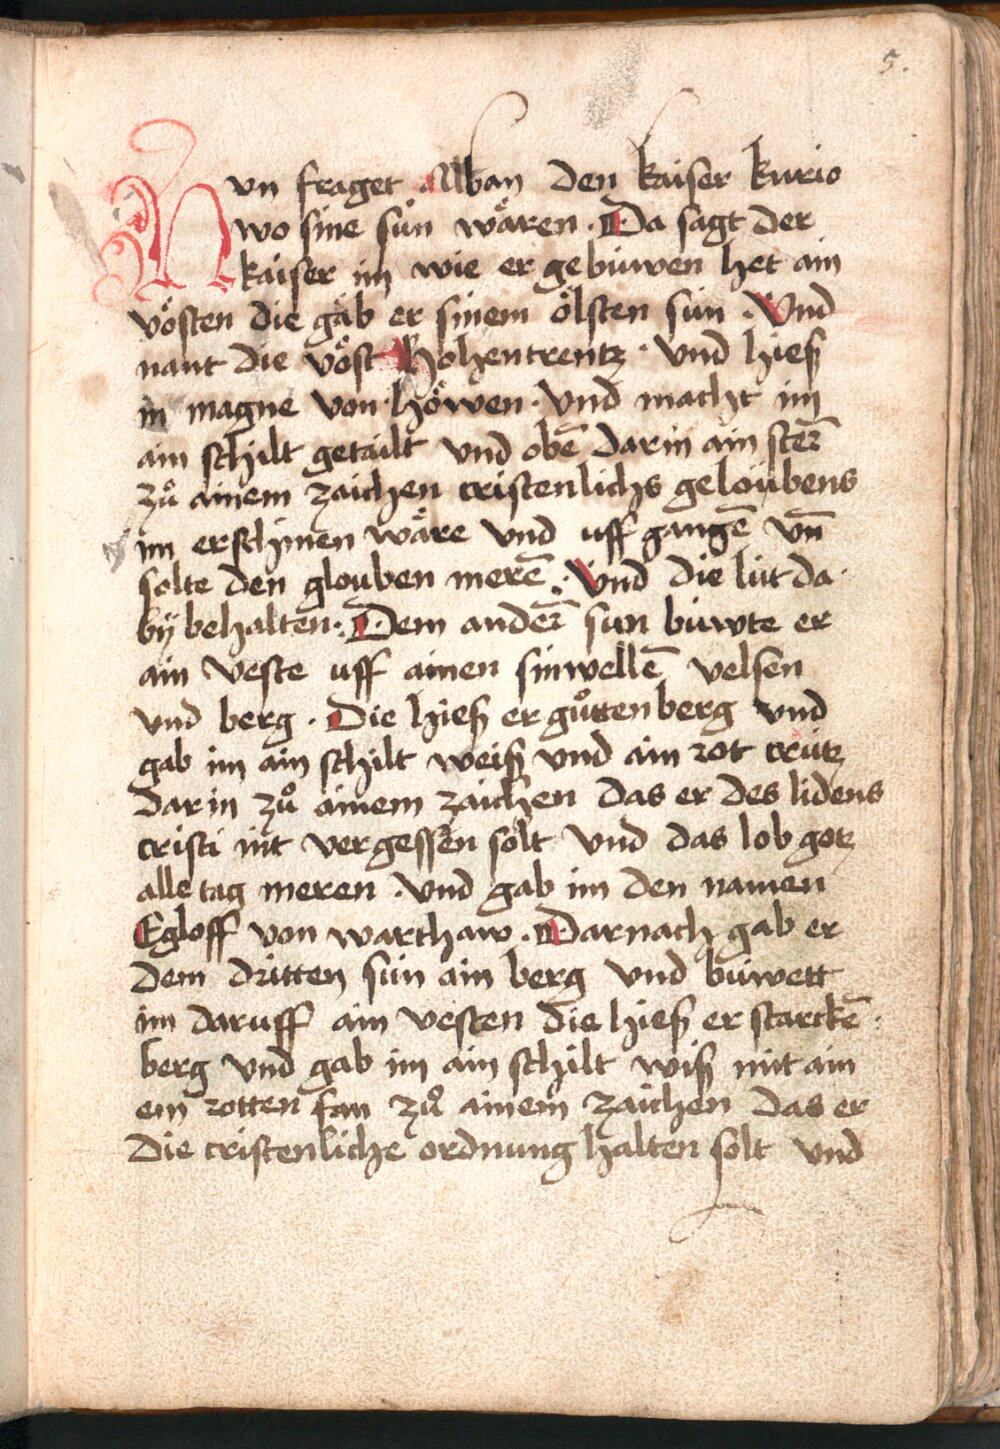 5.
Nvn fraget Alban den kaiser kurio
wo sine sún wären · Da sagt der
kaiser im wie er gebúwen het ain
vösten die gäb er sinem ölsten sún · Vnd
nant die vöst Hohentrentz · vnd hieß
in magne von höwen · vnd macht im
ain schilt getailt vnd obē darin ain sterr̄
zů ainem zaichen cristenlichs geloúbens
im erschinen wäre vnd uff gangē vn̄
solte den glouben merē · Vnd die lút da
bÿ behalten · Dem anderr̄ sun búwte er
ain veste uff ainen sinwellē velsen
vnd berg · Die hieß er gůttenberg vnd
gab im ain schilt weiß vnd ain rot crútz
dar in zů ainem zaichen das er des lidens
cristi nit vergessen solt vnd das lob gotz
alle tag meren · vnd gab im den namen
Egloff von warthaw · Darnach gab er
dem dritten sún ain berg vnd búwett
im daruff ain vesten die hieß er starckē
berg vnd gab im ain schilt wiß mit ain
em rotten fan zů ainem zaichen das er
die cristenliche ordnung halten solt vnd